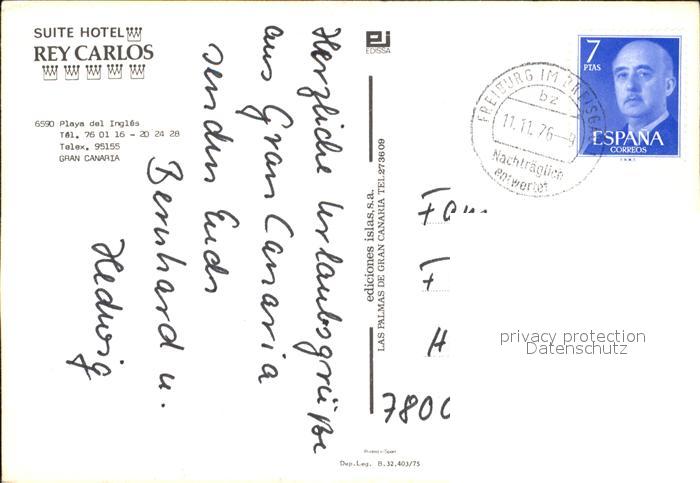 SUITE HOTEL
REY CARLOS
6590 Playa del Inglés
Tél. 76 01 16 - 20 24 28
Telex. 95155
GRAN CANARIA
Herzliche Urlaubsgrüße
aus Gran Canaria
senden Euch
Bernhard u.
Hedwig
EDISSA
ediciones islas,s.a.
LAS PALMAS DE GRAN CANARIA TEL.273609
Printed in Spain
Dep. Leg. B.32,403/75
7
PTAS
ESPAÑA
CORREOS
FREIBURG IM BREISGAU
bz
11.11.76-9
Nachträglich
entwertet
Fam
F
H
7800
privacy protection
Datenschutz